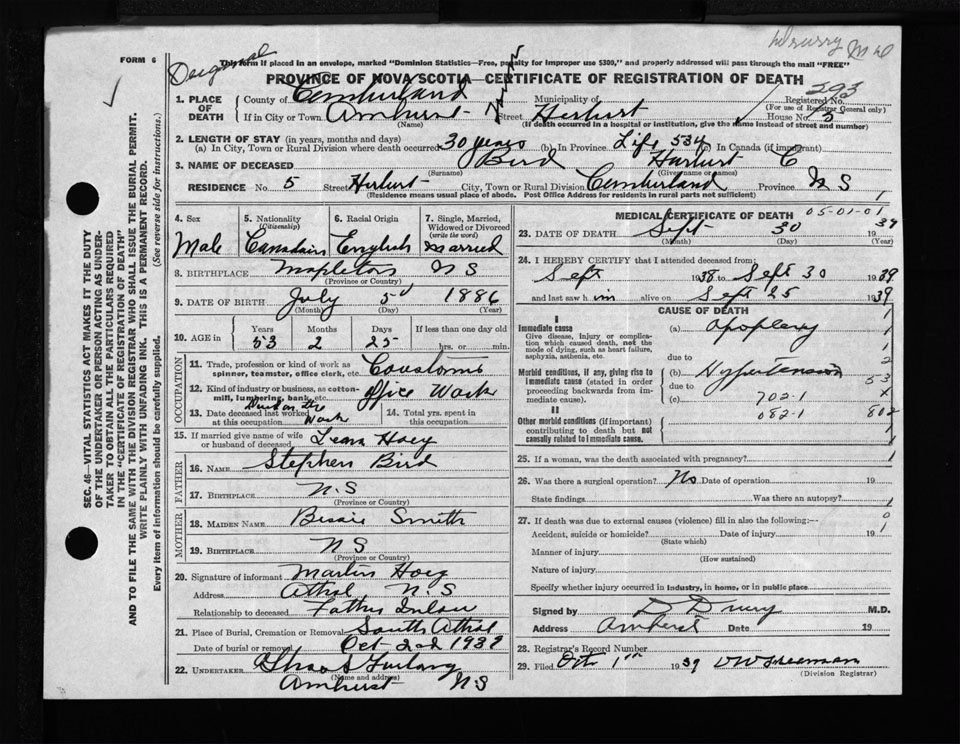 Drurry M d
FORM 6
This form if placed in an envelope, marked "Dominion Statistics—Free, penalty for improper use $300," and properly addressed will pass through the mail "FREE"
PROVINCE OF NOVA SCOTIA—CERTIFICATE OF REGISTRATION OF DEATH
293
1. PLACE OF DEATH County of Cumberland Municipality of Registered No.
(For use of Registrar General only)
If in City or Town Amhurst (Name) Street Herbert House No. 5
(If death occurred in a hospital or institution, give the name instead of street and number)
2. LENGTH OF STAY (in years, months and days)
(a) In City, Town or Rural Division where death occurred 30 years (b) In Province Life 534 (c) In Canada (if immigrant)
3. NAME OF DECEASED Bird (Surname) Hurburt C (Given name or names)
RESIDENCE No. 5 Street Herburt City, Town or Rural Division Cumberland Province N S
(Residence means usual place of abode. Post Office Address for residents in rural parts not sufficient)
1
4. Sex Male
5. Nationality (Citizenship) Canadain
6. Racial Origin English
7. Single, Married, Widowed or Divorced (write the word) Married
8. BIRTHPLACE Mapleton N S
(Province or Country)
9. DATE OF BIRTH July (Month) 5 (Day) 1886 (Year)
10. AGE in Years 53 Months 2 Days 25 If less than one day old hrs. or min.
OCCUPATION
11. Trade, profession or kind of work as spinner, teamster, office clerk, etc. Coustoms
12. Kind of industry or business, as cotton-mill, lumbering, bank, etc. Office Work
13. Date deceased last worked at this occupation
14. Total yrs. spent in this occupation
15. If married give name of wife or husband of deceased Leana Hoeg
FATHER
16. NAME Stephen Bird
17. BIRTHPLACE N.S
(Province or Country)
MOTHER
18. MAIDEN NAME Bessie Smith
19. BIRTHPLACE N S
(Province or Country)
20. Signature of informant Martin Hoeg
Address Athol N.S
Relationship to deceased Father Inlaw
21. Place of Burial, Cremation or Removal South Athol
Date of burial or removal Oct 2nd 1939
22. UNDERTAKER Furlong
(Name and address)
Amhurst N S
MEDICAL CERTIFICATE OF DEATH 05-01-01
23. DATE OF DEATH Sept (Month) 30 (Day) 1939 (Year)
24. I HEREBY CERTIFY that I attended deceased from:
Sept 1938 to Sept 30 1939
and last saw him alive on Sept 25 1939
CAUSE OF DEATH
I
Immediate cause
Give disease, injury or complication which caused death, not the mode of dying, such as heart failure, asphyxia, asthenia, etc.
(a) Apoplexy
due to
Morbid conditions, if any, giving rise to immediate cause (stated in order proceeding backwards from immediate cause).
(b) Hypertension
due to
(c) 702-1
II
Other morbid conditions (if important) contributing to death but not causally related to immediate cause.
082-1 802
25. If a woman, was the death associated with pregnancy?
26. Was there a surgical operation? No Date of operation 19
State findings Was there an autopsy?
27. If death was due to external causes (violence) fill in also the following:—
Accident, suicide or homicide? Date of injury 19
(State which)
Manner of injury
(How sustained)
Nature of injury
Specify whether injury occurred in industry, in home, or in public place
Signed by D Drury M.D.
Address Amherst Date 19
28. Registrar's Record Number
29. Filed Oct 1st 1939
(Division Registrar)
SEC. 46—VITAL STATISTICS ACT MAKES IT THE DUTY
OF THE UNDERTAKER OR PERSON ACTING AS UNDERTAKER TO OBTAIN ALL THE PARTICULARS REQUIRED
IN THE "CERTIFICATE OF REGISTRATION OF DEATH"
AND TO FILE THE SAME WITH THE DIVISION REGISTRAR WHO SHALL ISSUE THE BURIAL PERMIT.
WRITE PLAINLY WITH UNFADING INK. THIS IS A PERMANENT RECORD.
Every item of information should be carefully supplied. (See reverse side for instructions.)